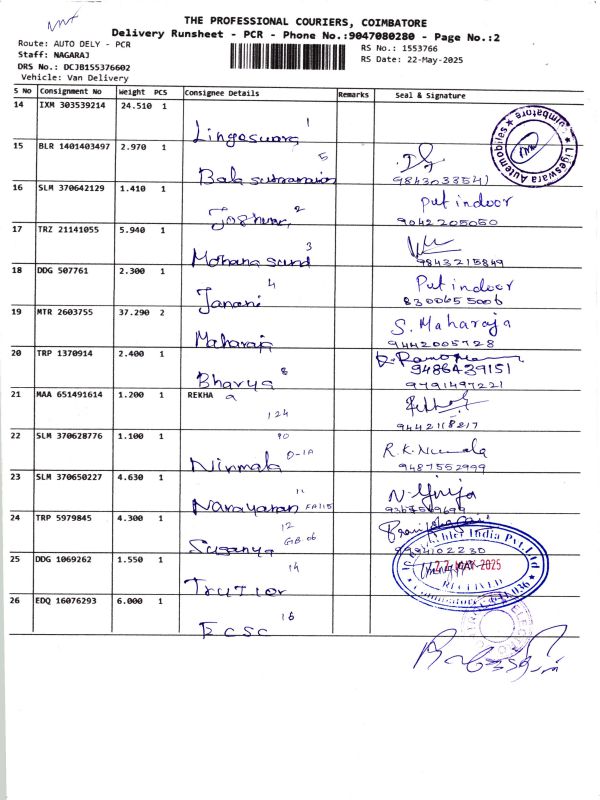 THE PROFESSIONAL COURIERS, COIMBATORE
Delivery Runsheet - PCR - Phone No.:9047080280 - Page No.:2
Route: AUTO DELY - PCR
RS No.: 1553766
Staff: NAGARAJ
RS Date: 22-May-2025
DRS No.: DCJB155376602
Vehicle: Van Delivery
S No Consignment No Weight PCS Consignee Details Remarks Seal & Signature
14 IXM 303539214 24.510 1
Lingeswara 1
Ligeswara Automobiles * Coimbatore *
15 BLR 1401403497 2.970 1
5
9843033541
16 SLM 370642129 1.410 1
Joshua, 2
Put indoor
9042205050
17 TRZ 21141055 5.940 1
Mohana sund 3
9843215849
18 DDG 507761 2.300 1
Janani 4
Put indoor
8300655006
19 MTR 2603755 37.290 2
Maharaja
S. Maharaja
9442005728
20 TRP 1370914 2.400 1
Bhavya 8
9486439151
9791497221
21 MAA 651491614 1.200 1 REKHA 9
124
9442118217
22 SLM 370628776 1.100 1
10
Nirmala D-1A
R.K.Nirmala
9487552999
23 SLM 370650227 4.630 1
11
Narayanan FA115
N. Girija
24 TRP 5979845 4.300 1
12
Suganya GB 06
9994102230
25 DDG 1069262 1.550 1
14
India Pvt. Ltd
22 MAY 2025
RECEIVED
26 EDQ 16076293 6.000 1
16
ECSC